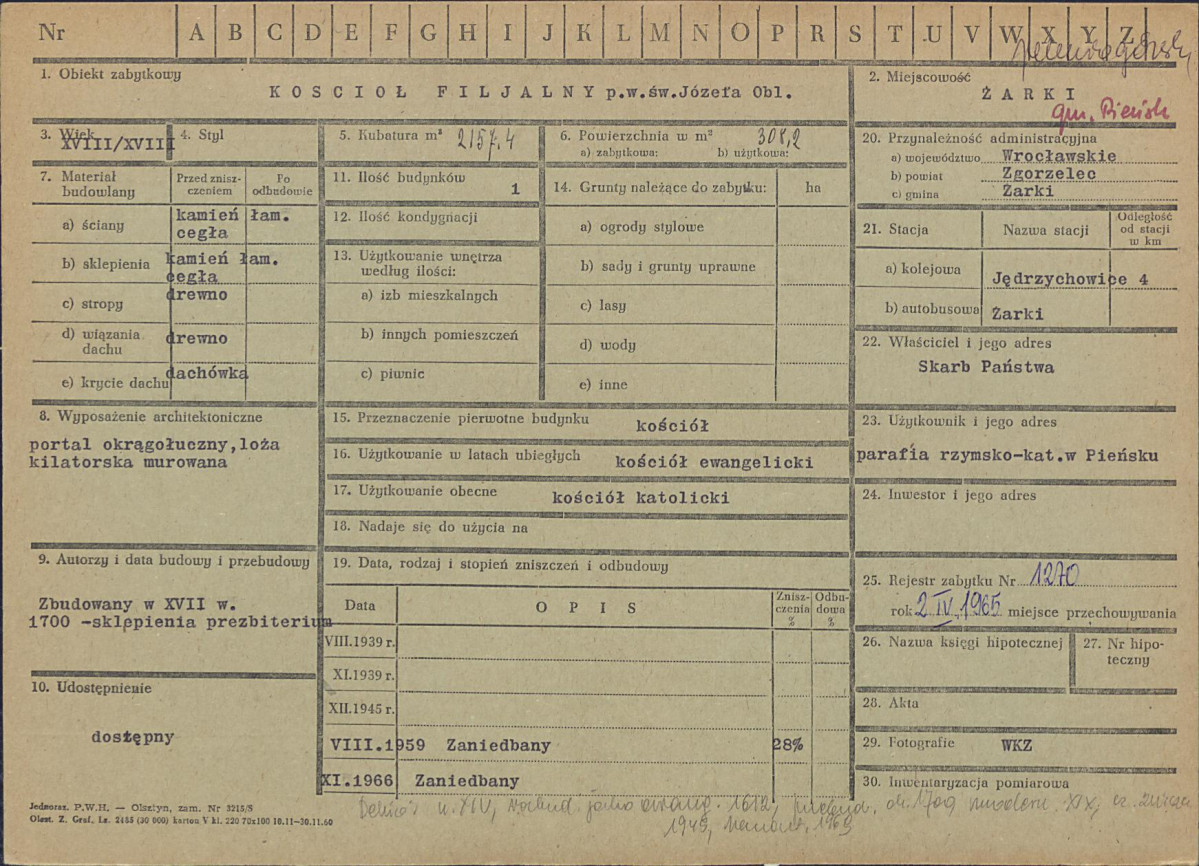 Nr A B C D E F G H I J K L M N O P R S T U V W X Y Z
1. Obiekt zabytkowy
KOSCIOŁ FILJALNY p.w.św.Józefa Obl.
2. Miejscowość
ŻARKI
gm. Pieńsk
3. Wiek
XVIII/XVIII
4. Styl
5. Kubatura m³ 2157,4
6. Powierzchnia w m² 308,2
a) zabytkowa: b) użytkowa:
7. Materiał budowlany
Przed zniszczeniem
Po odbudowie
a) ściany kamień łam.
cegła
b) sklepienia kamień łam.
cegła
c) stropy drewno
d) wiązania dachu drewno
e) krycie dachu dachówka
8. Wyposażenie architektoniczne
portal okrągołuczny,loża
kilatorska murowana
9. Autorzy i data budowy i przebudowy
Zbudowany w XVII w.
1700 -sklepienia prezbiterium
10. Udostępnienie
dostępny
11. Ilość budynków 1
12. Ilość kondygnacji
13. Użytkowanie wnętrza
według ilości:
a) izb mieszkalnych
b) innych pomieszczeń
c) piwnic
14. Grunty należące do zabytku: ha
a) ogrody stylowe
b) sady i grunty uprawne
c) lasy
d) wody
e) inne
15. Przeznaczenie pierwotne budynku kościół
16. Użytkowanie w latach ubiegłych kościół ewangelicki
17. Użytkowanie obecne kościół katolicki
18. Nadaje się do użycia na
19. Data, rodzaj i stopień zniszczeń i odbudowy
Data OPIS Zniszczenia % Odbudowa %
VIII.1939 r.
XI.1939 r.
XII.1945 r.
VIII.1959 Zaniedbany 28%
XI.1966 Zaniedbany
20. Przynależność administracyjna
a) województwo Wrocławskie
b) powiat Zgorzelec
c) gmina Żarki
21. Stacja Nazwa stacji Odległość od stacji w km
a) kolejowa Jędrzychowice 4
b) autobusowa Żarki
22. Właściciel i jego adres
Skarb Państwa
23. Użytkownik i jego adres
parafia rzymsko-kat.w Pieńsku
24. Inwestor i jego adres
25. Rejestr zabytku Nr 1270
rok 2 IV 1965 miejsce przechowywania
26. Nazwa księgi hipotecznej
27. Nr hipoteczny
28. Akta
29. Fotografie WKZ
30. Inwentaryzacja pomiarowa
Jednoraz. P.W.H. — Olsztyn, zam. Nr 3215/S
Olszt. Z. Graf. Lz. 2485 (30 000) karton V kl. 220 70x100 18.11—30.11.60